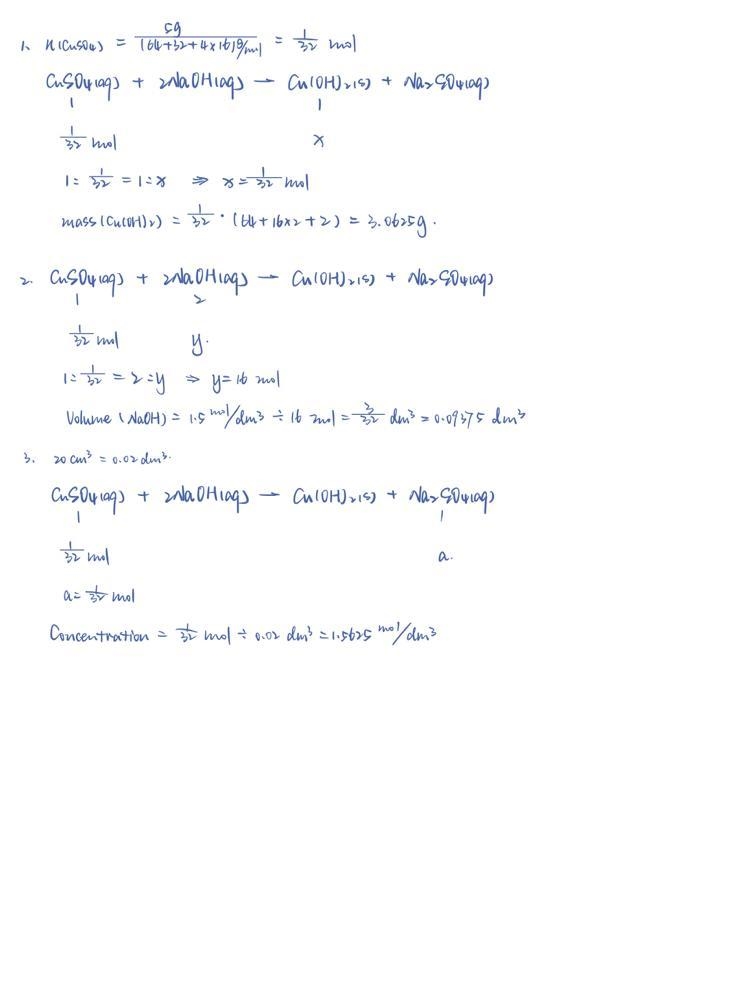 1. n(CuSO4) = 5g / (64+32+4×16)g/mol = 1/32 mol
CuSO4(aq) + 2NaOH(aq) → Cu(OH)2(s) + Na2SO4(aq)
1 1
1/32 mol x
1 : 1/32 = 1 : x ⇒ x = 1/32 mol
mass (Cu(OH)2) = 1/32 · (64+16×2+2) = 3.0625g.
2. CuSO4(aq) + 2NaOH(aq) → Cu(OH)2(s) + Na2SO4(aq)
1 2
1/32 mol y.
1 : 1/32 = 2 : y ⇒ y = 16 mol
Volume (NaOH) = 1.5 mol/dm³ ÷ 16 mol = 3/32 dm³ = 0.09375 dm³
3. 20 cm³ = 0.02 dm³.
CuSO4(aq) + 2NaOH(aq) → Cu(OH)2(s) + Na2SO4(aq)
1 1
1/32 mol a.
a = 1/32 mol
Concentration = 1/32 mol ÷ 0.02 dm³ = 1.5625 mol/dm³